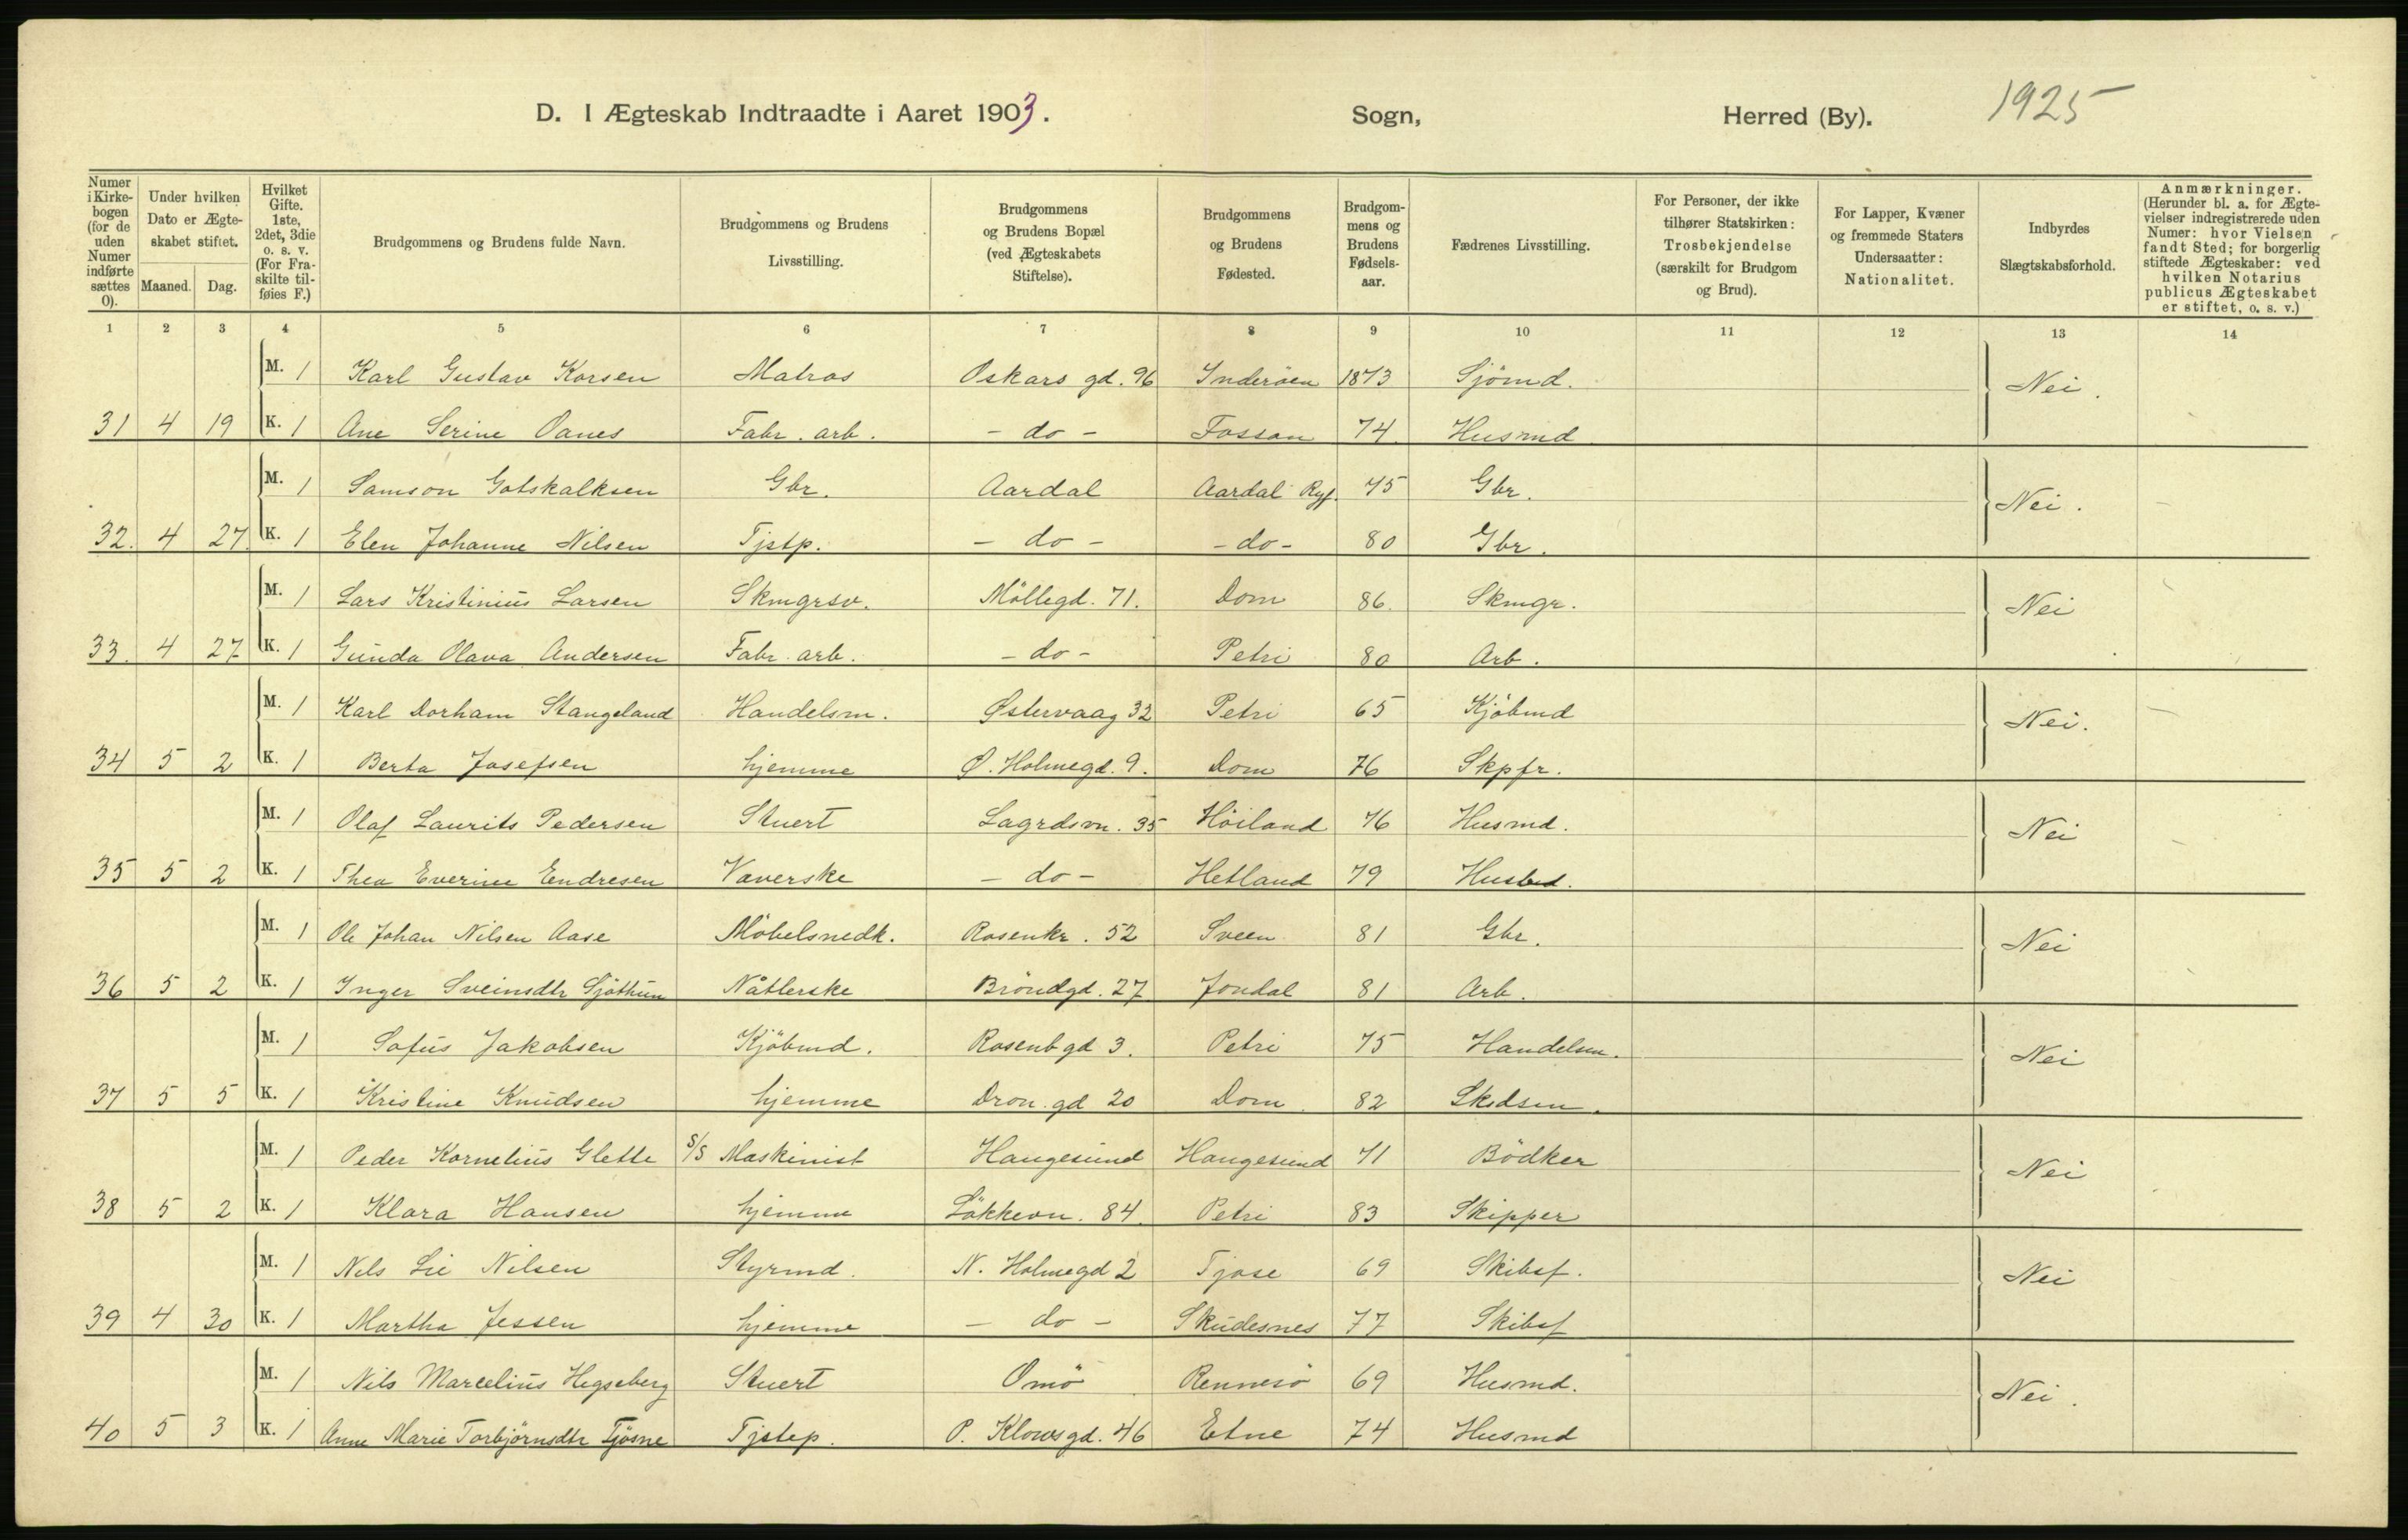 D. I Ægteskab Indtraadte i Aaret 1903. Sogn, Herred (By). 1925
Numer i Kirkebogen (for de uden Numer indførte sættes 0). Under hvilken Dato er Ægteskabet stiftet. Maaned. Dag. Hvilket Gifte. 1ste, 2det, 3die o. s. v. (For Fraskilte tilføies F.) Brudgommens og Brudens fulde Navn. Brudgommens og Brudens Livsstilling. Brudgommens og Brudens Bopæl (ved Ægteskabets Stiftelse). Brudgommens og Brudens Fødested. Brudgommens og Brudens Fødselsaar. Fædrenes Livsstilling. For Personer, der ikke tilhører Statskirken: Trosbekjendelse (særskilt for Brudgom og Brud). For Lapper, Kvæner og fremmede Staters Undersaatter: Nationalitet. Indbyrdes Slægtskabsforhold. Anmærkninger. (Herunder bl. a. for Ægtevielser indregistrerede uden Numer: hvor Vielsen fandt Sted; for borgerlig stiftede Ægteskaber: ved hvilken Notarius publicus Ægteskabet er stiftet, o. s. v.)
1 2 3 4 5 6 7 8 9 10 11 12 13 14
M. 1 Karl Gustav Korsen Matros Oskars gd. 96 Inderöen 1873 Sjömd. Nei.
31 4 19 K. 1 Ane Serine Oanes Fabr. arb. - do - Fossan 74. Husmd
M. 1 Samson Gotskalksen Gbr. Aardal Aardal Ryf. 75 Gbr. Nei.
32. 4 27. K. 1 Elen Johanne Nilsen Tjstp. - do - - do - 80 Gbr.
M. 1 Lars Kristinius Larsen Skmgrsv. Möllegd. 71. Dom 86. Skmgr. Nei
33. 4 27 K. 1 Gunda Olava Andersen Fabr. arb. - do - Petri 80 Arb.
M. 1 Karl Dorham Stangeland Handelsm. Østervaag 32 Petri 65 Kjöbmd Nei.
34 5 2 K. 1 Berta Josefsen hjemme Ø. Holmegd. 9. Dom 76 Skpfr.
M. 1 Olaf Laurits Pedersen Stuert Lagrdsvn. 35 Höiland 76 Husmd. Nei
35 5 2 K. 1 Thea Everine Endresen Væverske - do - Hetland 79
M. 1 Ole Johan Nilsen Aase Möbelsnedk. Rosenkr. 52 Sveen 81 Gbr. Nei
36 5 2 K. 1 Inger Sveinsdtr Sjöthun Nåtlerske Bröndgd. 27 Jondal 81 Arb.
M. 1 Sofus Jakobsen Kjöbmd. Rosenbgd 3. Petri 75 Handelsm. Nei
37 5 5 K. 1 Kristine Knudsen hjemme Dron. gd 20 Dom 82
M. 1 Peder Kornelius Glette S/S Maskinist Haugesund Haugesund 71 Bödker Nei
38 5 2 K. 1 Klara Hansen hjemme Lökkevn. 84. Petri 83 Skipper
M. 1 Nils Lie Nilsen Styrmd. N. Holmegd 2 Tjose 69 Skibsf. Nei
39 4 30 K. 1 Martha Jessen hjemme - do - Skudesnes 77 Skibsf
M. 1 Nils Marcelius Hegseberg Stuert Omö Rennesö 69 Husmd. Nei.
40 5 3 K. 1 Anne Marie Torbjörnsdtr Tjösne Tjstep. P. Klowsgd. 46 Etne 74 Husmd